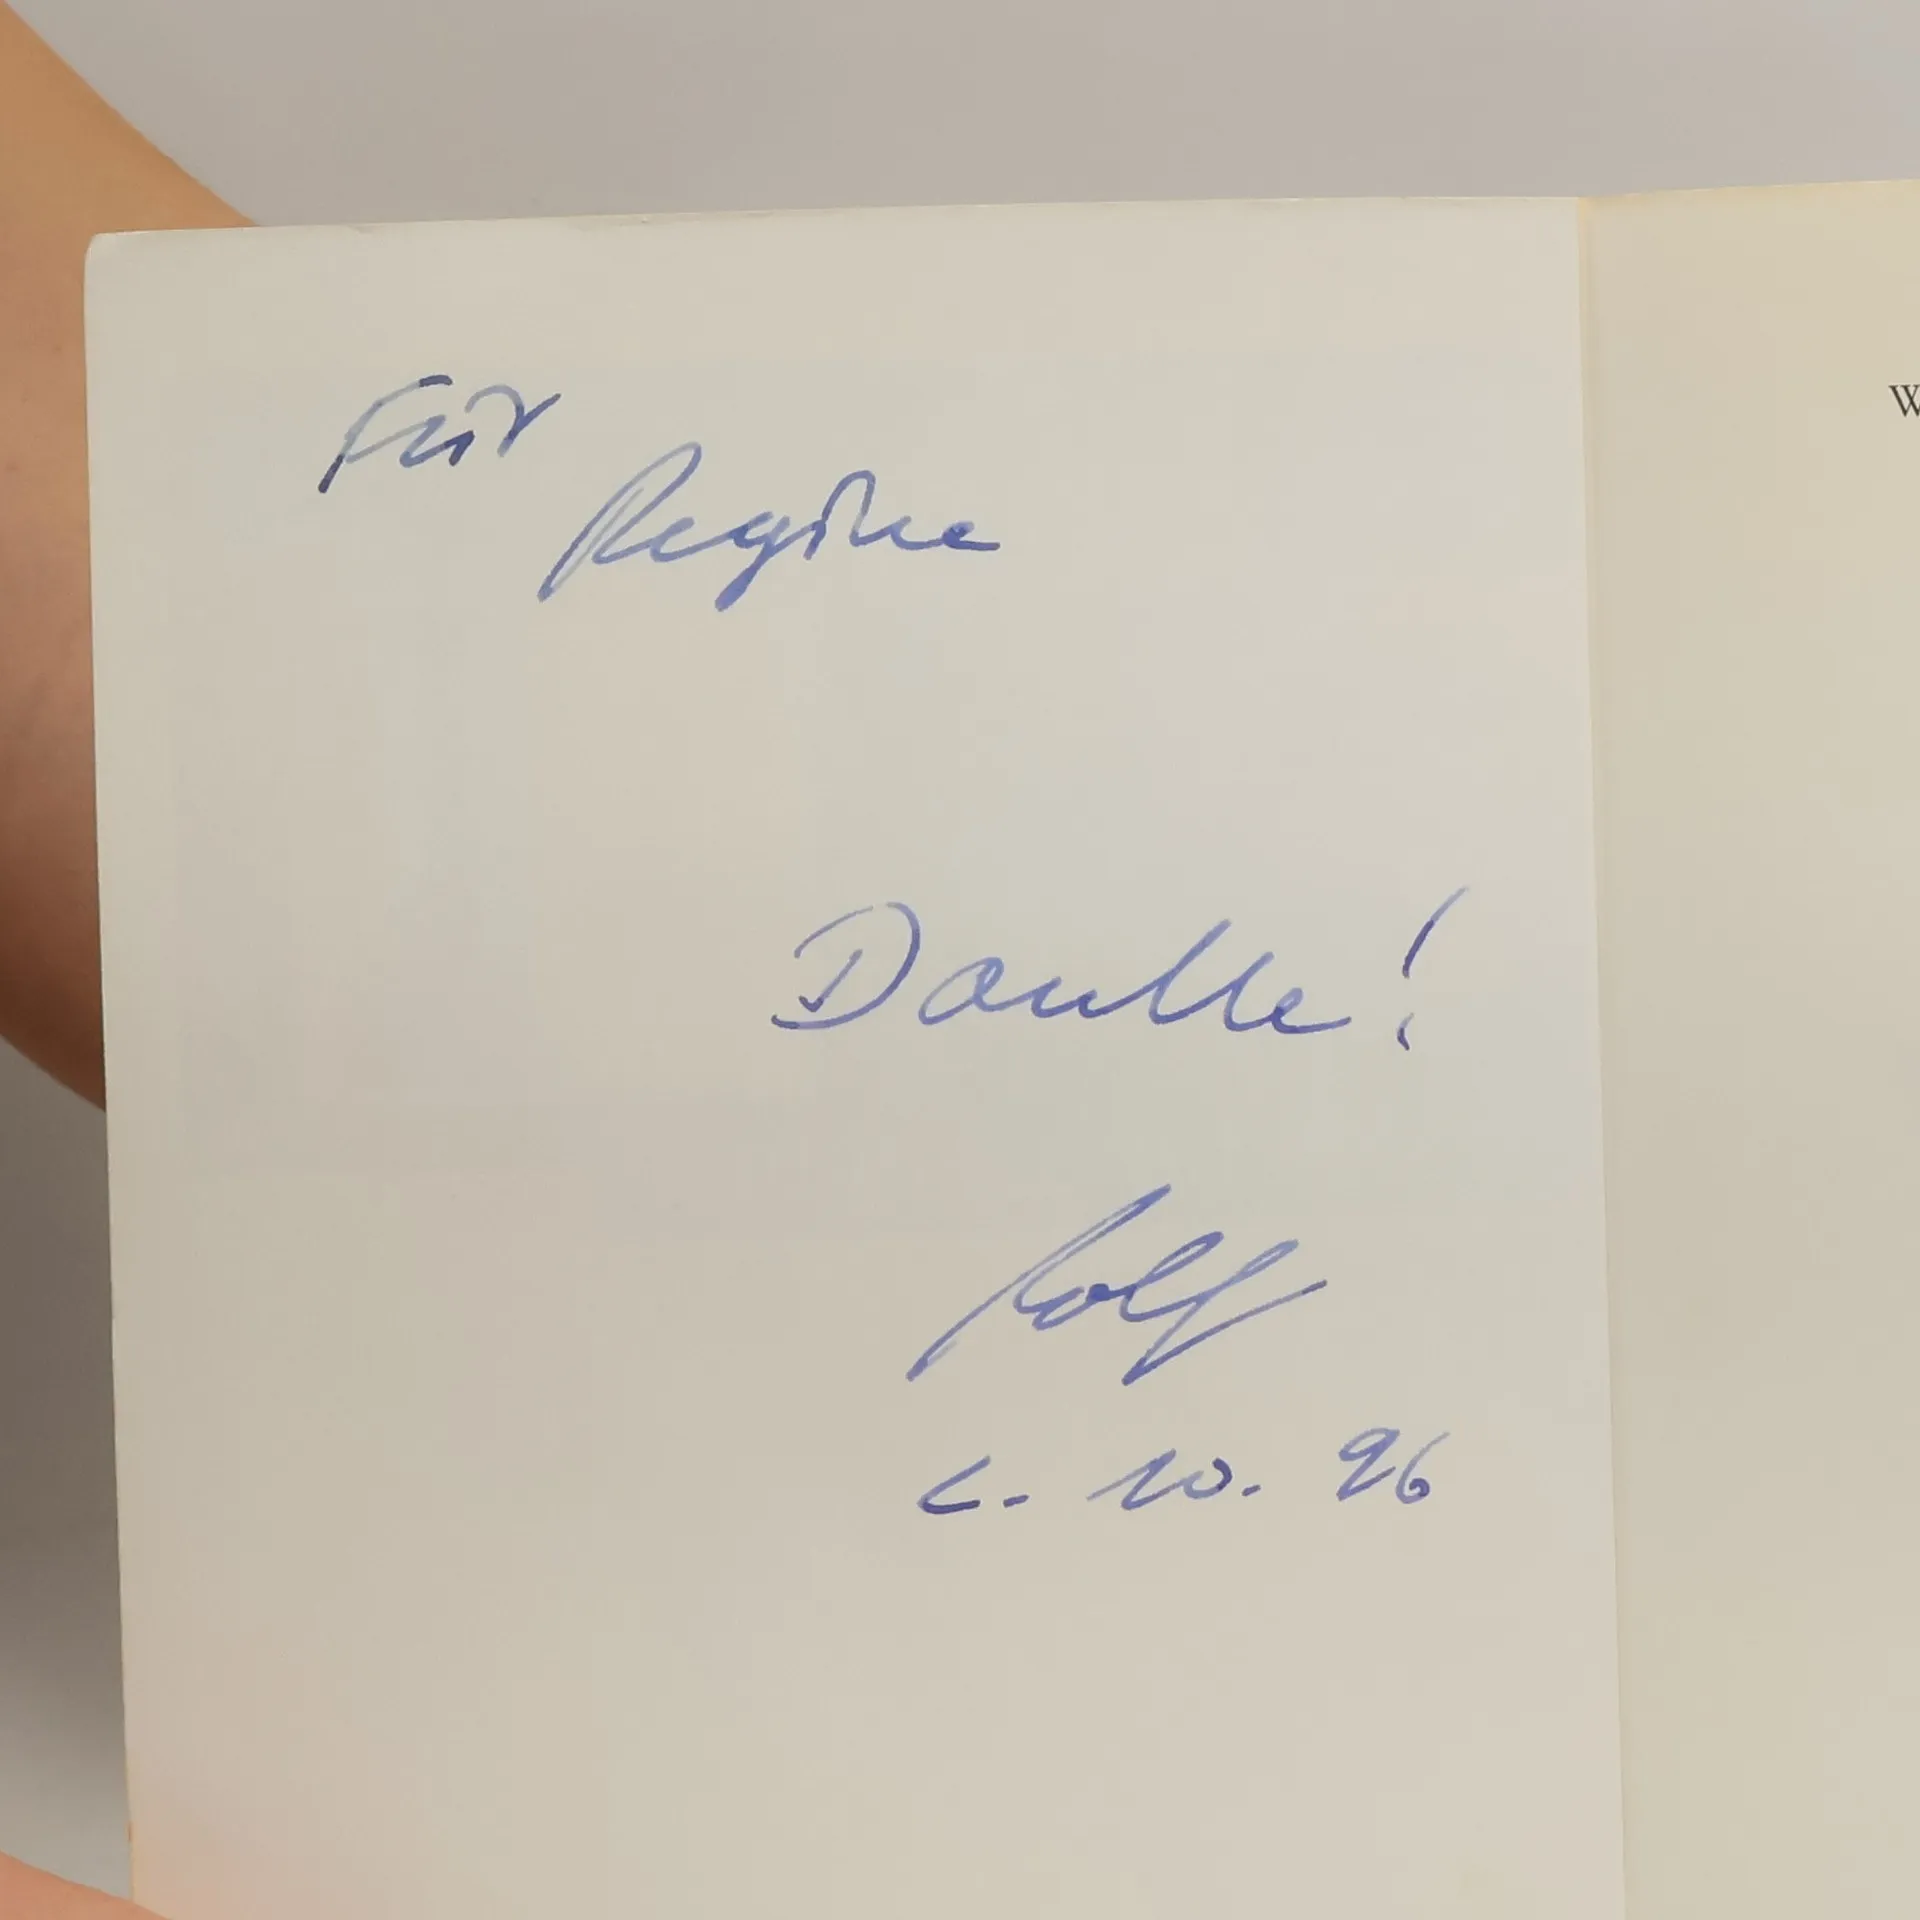 Für
Regine
Danke!
Rolf
10. 96
W